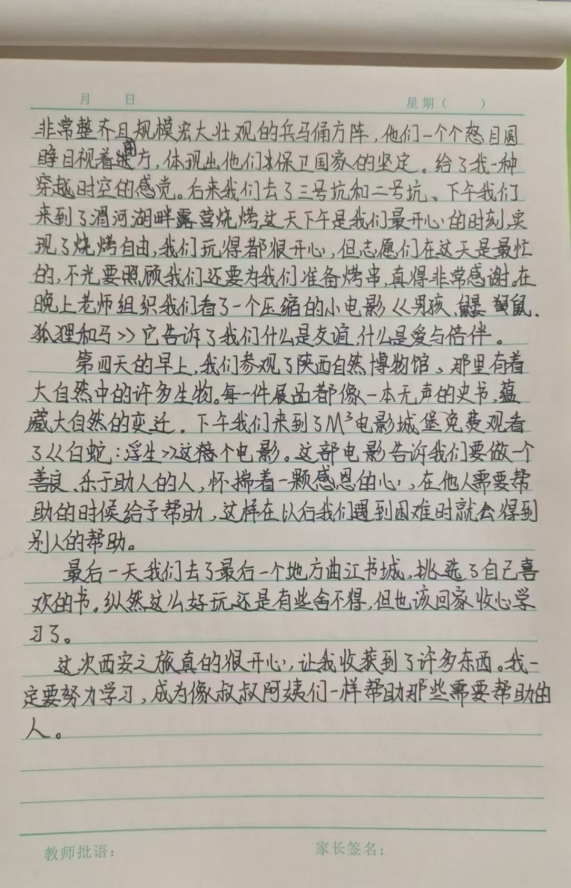 月 日 星期（ ）
非常整齐且规模宏大壮观的兵马俑方阵，他们一个个怒目圆
睁目视着远方，体现出他们保卫国家的坚定。给了我一种
穿越时空的感觉。后来我们去了三号坑和二号坑、下午我们
来到了渭河湖畔露营烧烤，这天下午是我们最开心的时刻，实
现了烧烤自由，我们玩得都很开心，但志愿们在这天是最忙
的，不光要照顾我们还要为我们准备烤串，真得非常感谢。在
晚上老师组织我们看了一个压缩的小电影《男孩、鼹鼠、
狐狸和马》它告诉了我们什么是友谊，什么是爱与陪伴。
第四天的早上，我们参观了陕西自然博物馆，那里有着
大自然中的许多生物。每一件展品都像一本无声的史书，蕴
藏大自然的变迁。下午我们来到了M³电影城堡免费观看
了《白蛇：浮生》这个电影。这部电影告诉我们要做一个
善良、乐于助人的人，怀揣着一颗感恩的心，在他人需要帮
助的时候给予帮助，这样在以后我们遇到困难时就会得到
别人的帮助。
最后一天我们去了最后一个地方曲江书城，挑选了自己喜
欢的书。纵然这么好玩还是有些舍不得，但也该回家收心学
习了。
这次西安之旅真的很开心，让我收获到了许多东西。我一
定要努力学习，成为像叔叔阿姨们一样帮助那些需要帮助的
人。
教师批语： 家长签名：